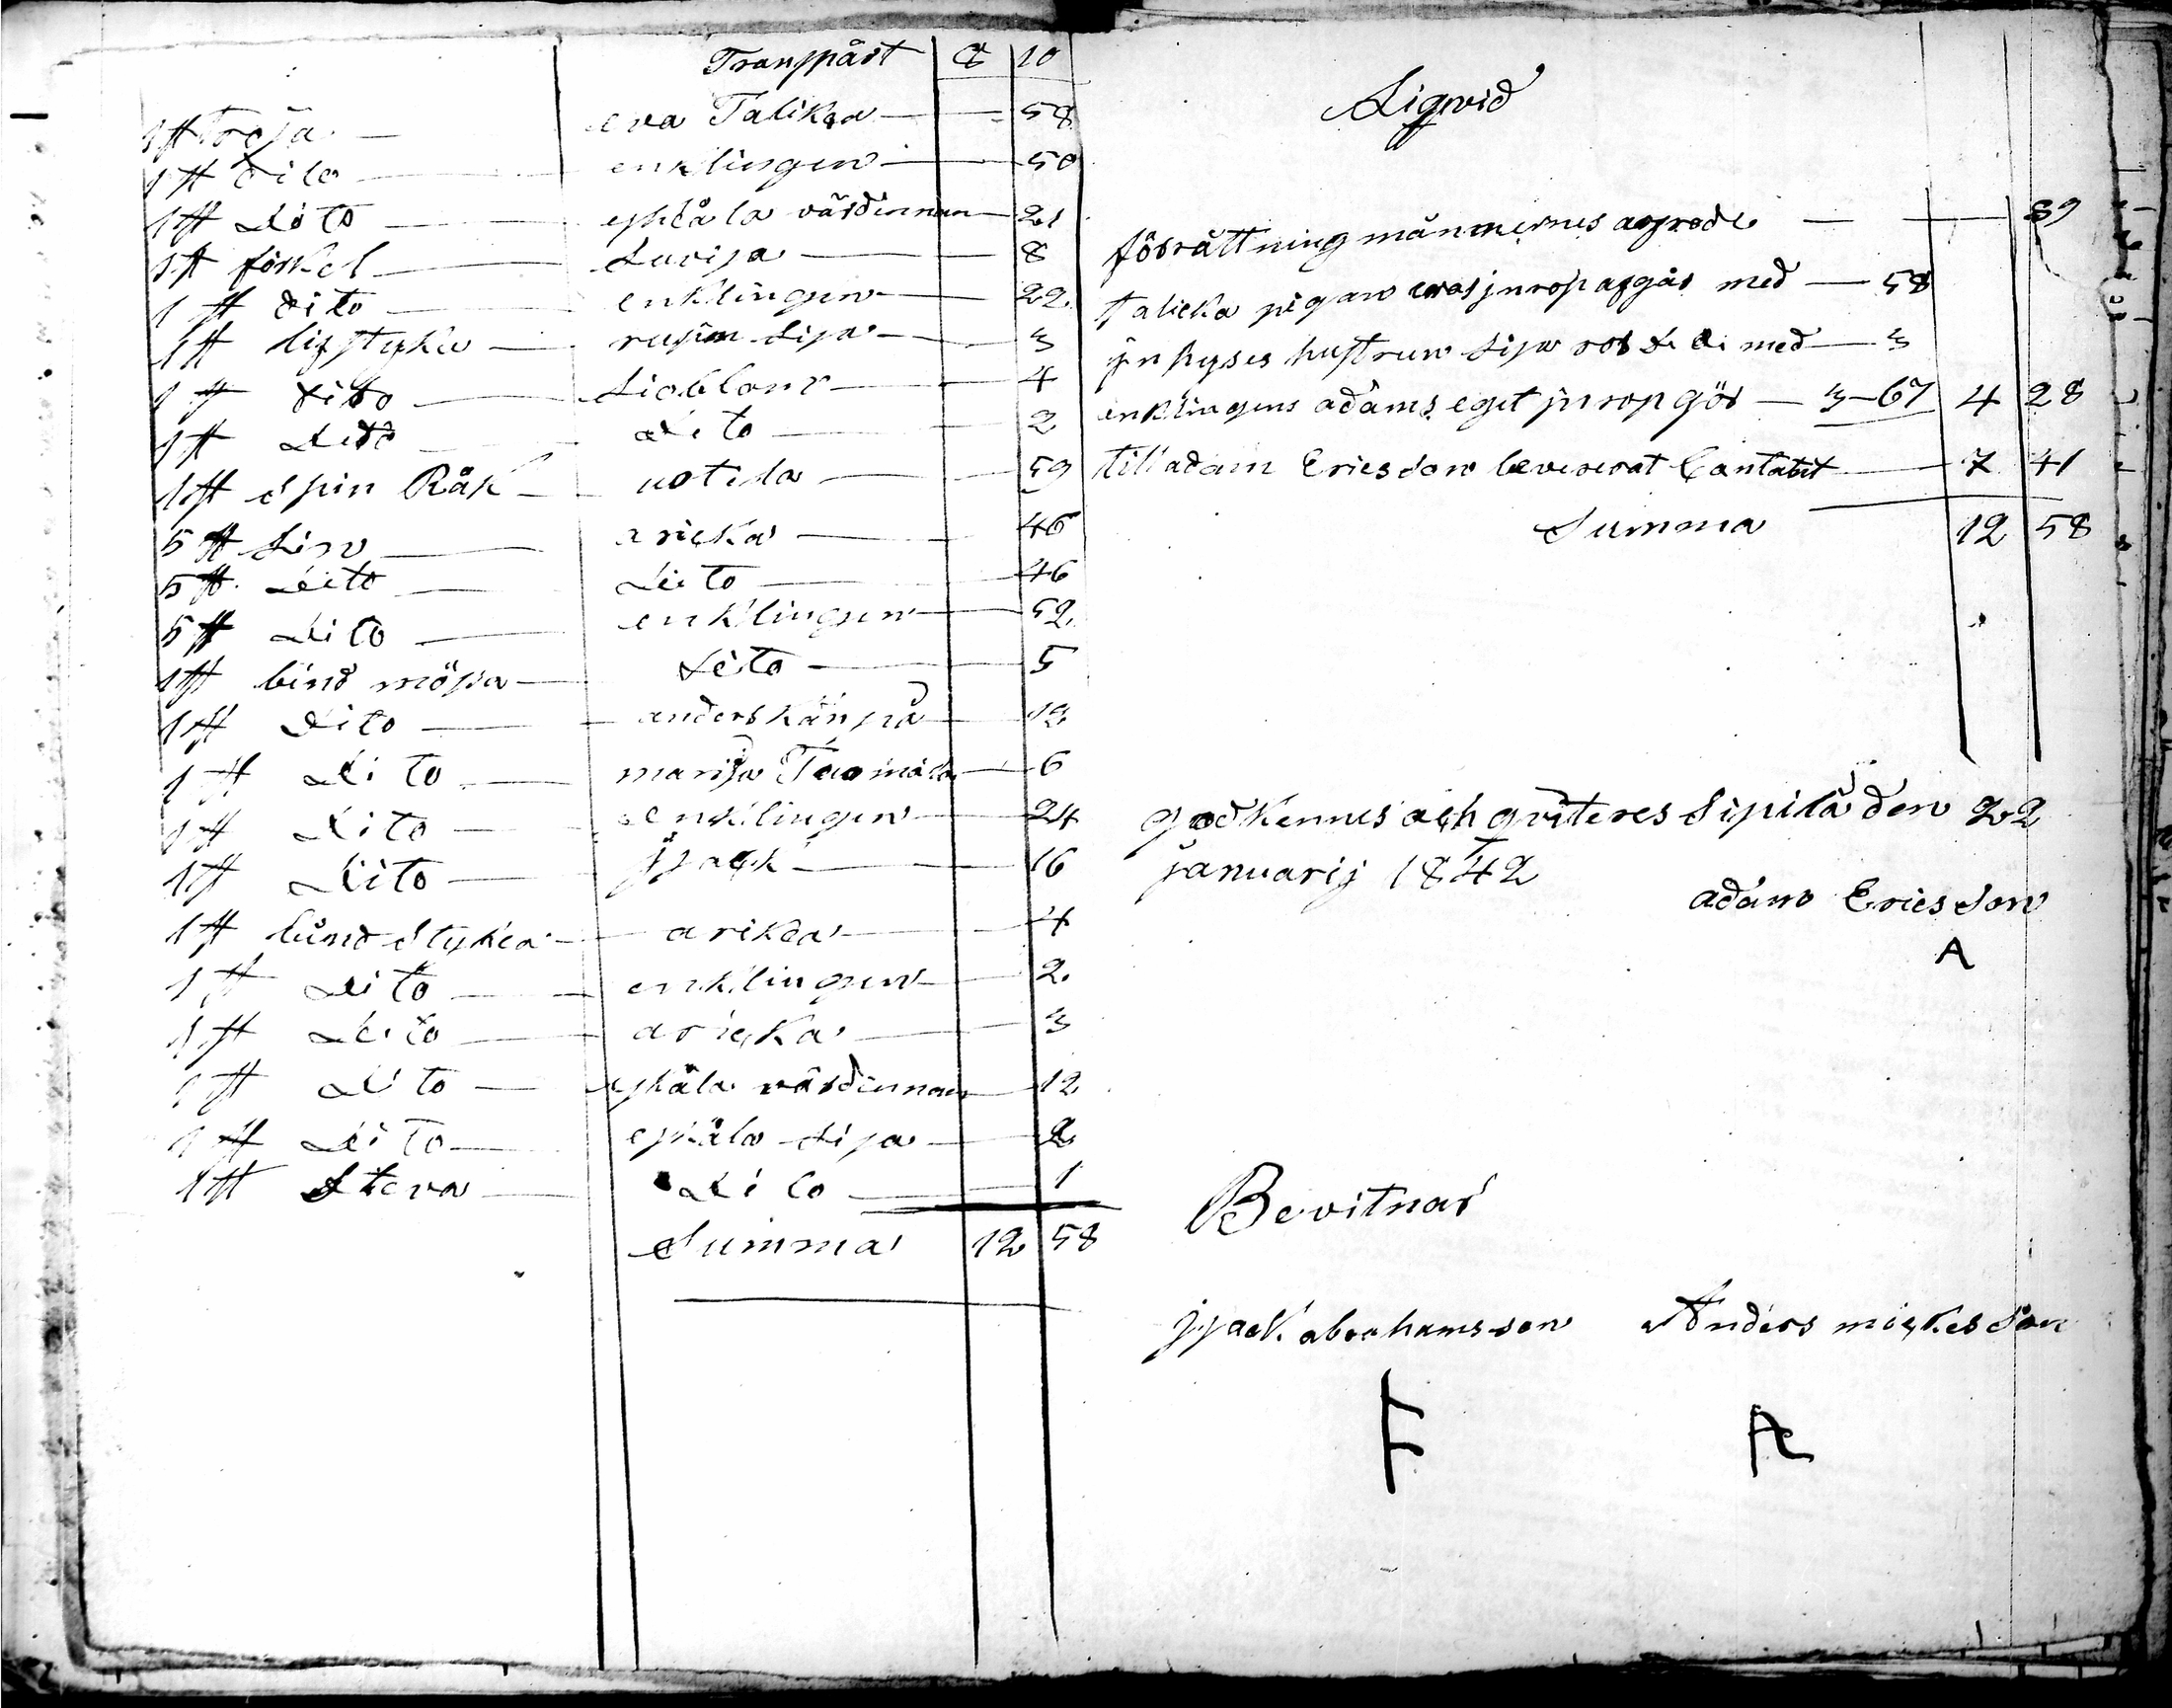 Transpårt 8 10
1 st tröja — eva Talikka — 58
1 st dito — enklingen — 50
1 st dito — eskåla värdinnan — 21
1 st förkel — Lovisa — 8
1 st dito — enklingen — 22
1 st lifstyke — Lisa — 3
1 st dito — 4
1 st dito — dito — 2
1 st Spin Råk — uotila — 59
5 st Lin — aricka — 46
5 st dito — dito — 46
5 st dito — enklingen — 52
1 st bind mösa — dito — 5
1 st dito — anders känpä — 12
1 st dito — marija Tuomåla — 6
1 st dito — enklingen — 24
1 st dito — jsack — 16
1 st bund Stykea — arikca — 4
1 st dito — enklingen — 2
1 st dito — aricka — 3
1 st dito — eskåla värdinnan — 12
1 st dito — eskåla Lisa — 2
1 st — dito — 1
Summa 12 58
Liqvid
förrättning männernes agrode — 39
talicka pigan evas jnrop afgår med — 58
jnhyses hustrun Lisa med — 3
enklingens adams eget jnrop gör — 3-67 4 28
till adam Ericsson levererat Contabit — 7 41
Summa 12 58
godkennes och qviteres Sipilä den 22
januarij 1842
adam Ericsson
A
Bevitnar
jsack abrahamsson Anders mickesson
F A